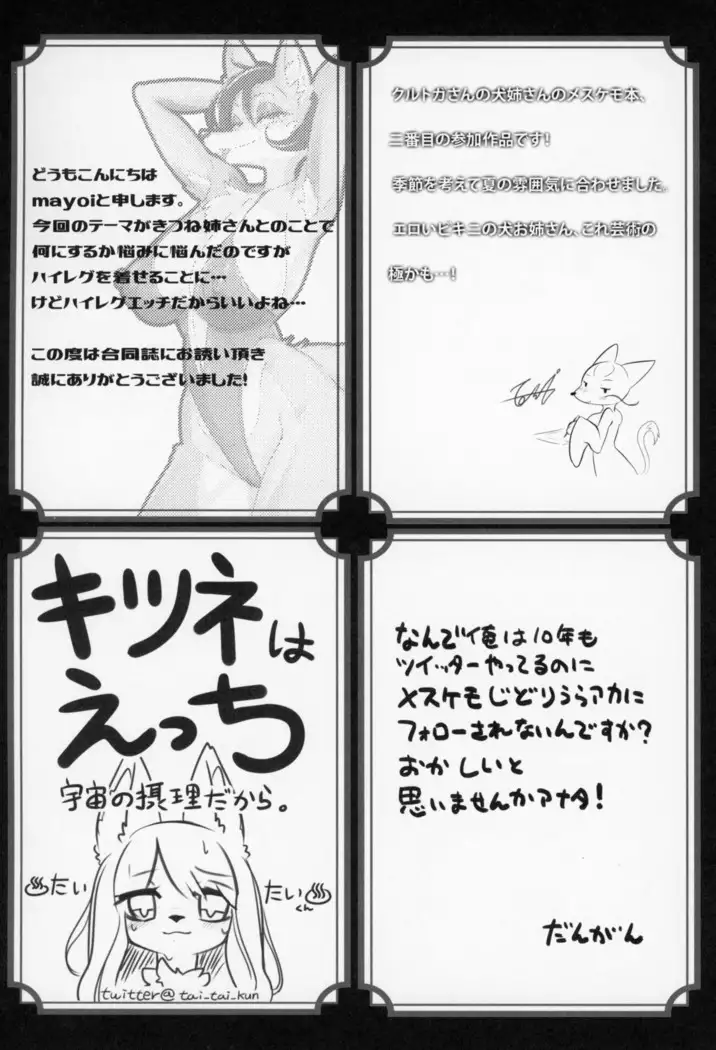 どうもこんにちは
mayoiと申します。
今回のテーマがきつね姉さんとのことで
何にするか悩みに悩んだのですが
ハイレグを着せることに…
けどハイレグエッチだからいいよね…
この度は合同誌にお誘い頂き
誠にありがとうございました!
クルトガさんの犬姉さんのメスケモ本、
三番目の参加作品です!
季節を考えて夏の雰囲気に合わせました。
エロいビキニの犬お姉さん、これ芸術の
極かも…!
キツネは
えっち
宇宙の摂理だから。
♨たい
たい♨
くん
twitter@tai_tai_kun
なんでイ俺は10年も
ツイッターやってるのに
メスケモじどりうらアカに
フォローされないんですか?
おかしいと
思いませんかアナタ!
だんがん